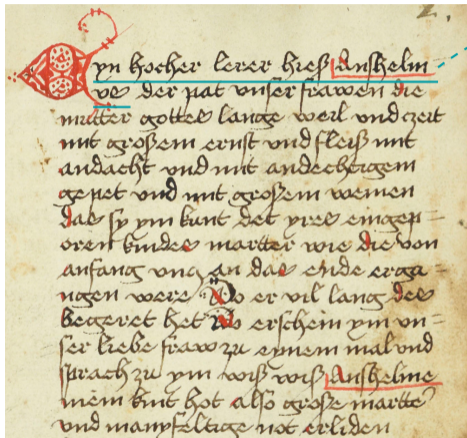 Eyn hocher lerer hieß Anshelm
us der pat unser frawen die
mutter gottes lange weil und czeit
mit großem ernst und fleiß mit
andacht und mit andechtigem
gepet und mit großem weinen
das sy ym kunt det yres eingep=
oren kindes martter wie die von
anfang uncz an das ende erga=
ngen were Do er vil lang des
begeret het do erschein ym un=
ser liebe fraw zu eynem mal und
sprach zu ym wiß wiß Anshelme
mein kint hot also große martter
und manyfeltige not erliden